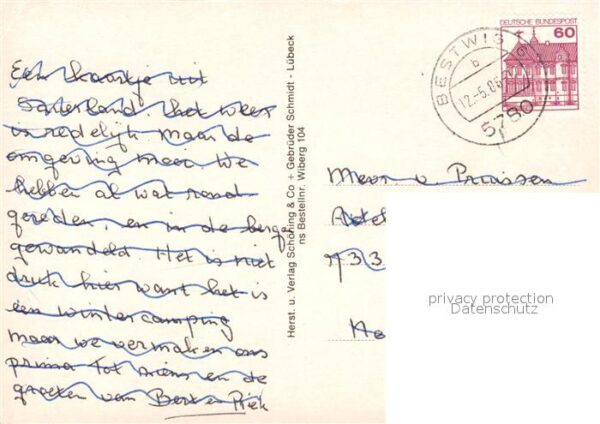 Een kaartje uit
Sauerland. Het weer
is redelijk maar de
omgeving mooi. We
hebben al wat rond
gereden, en in de bergen
gewandeld Het is niet
druk hier want het is
een wintercamping
maar we vermaken ons
prima Tot ziens en de
groeten van Bert en Riek
Herst. u. Verlag Schöning & Co + Gebrüder Schmidt - Lübeck
ns Bestellnr. Wiberg 104
DEUTSCHE BUNDESPOST
60
BESTWIG
b
12.-5.86
5780
Mevr. v Pruissen
733
privacy protection
Datenschutz